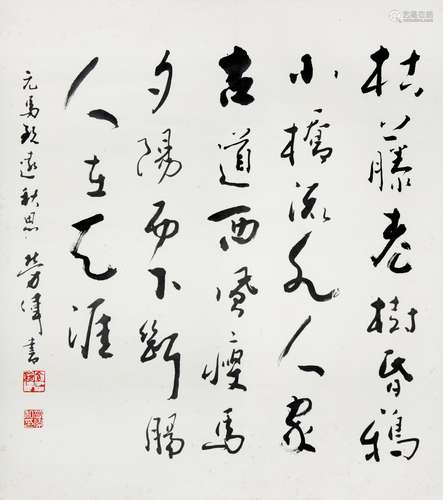 枯藤老樹昏鴉
小橋流水人家
古道西風瘦馬
夕陽西下斷腸
人在天涯
元馬致遠秋思 勞偉書